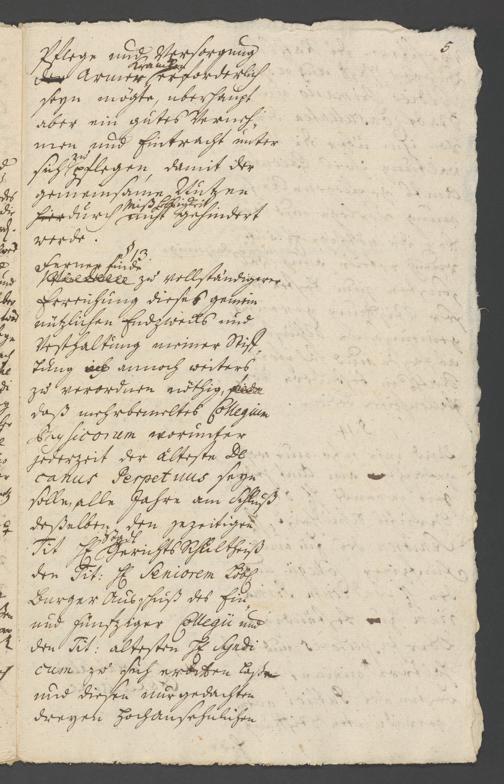 5
Pflege und Versorgung
der Armer Krancken erforderlich
seyn mögte, überhaupt
aber ein gutes Verneh-
men und Eintracht unter
sich zu pflegen damit der
gemeinsame Nutzen
hierdurch nicht Mißhelligkeit gehindert
werde.
§ 13.
Ferner finde
zu vollständigerer
Erreichung dieses gemein
nützlichen Endzwecks und
Vesthaltung meiner Stif-
tung annoch weiters
zu verordnen nöthig,
daß mehrbemeltes Collegium
Physicorum worunter
jederzeit der älteste De
canus Perpetuus seyn
solle, alle Jahre am Schluß
desselben, den zeitigen
Tit. H. Stadt Gerichts Schultheiß
den Tit: H. Seniorem Löbl.
Burger Ausschuß des Ein
und funfziger Collegii und
den Tit: ältesten H. Syndi
cum zu sich erbitten lassen
und diesen nurgedachten
dreyen Hochansehnlichen